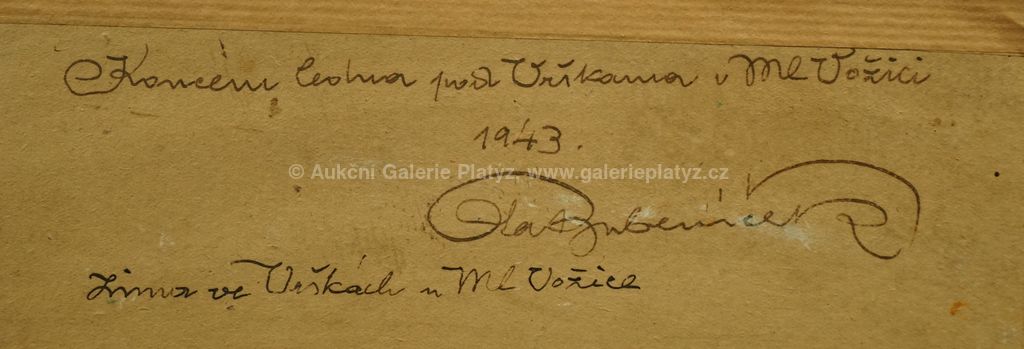 Koncem ledna pod Vrškama u Ml Vožici
1943.
© Aukční Galerie Platýz, www.galerieplatyz.cz
Ota Bubeníček
Zima ve Vrškách u Ml Vožice